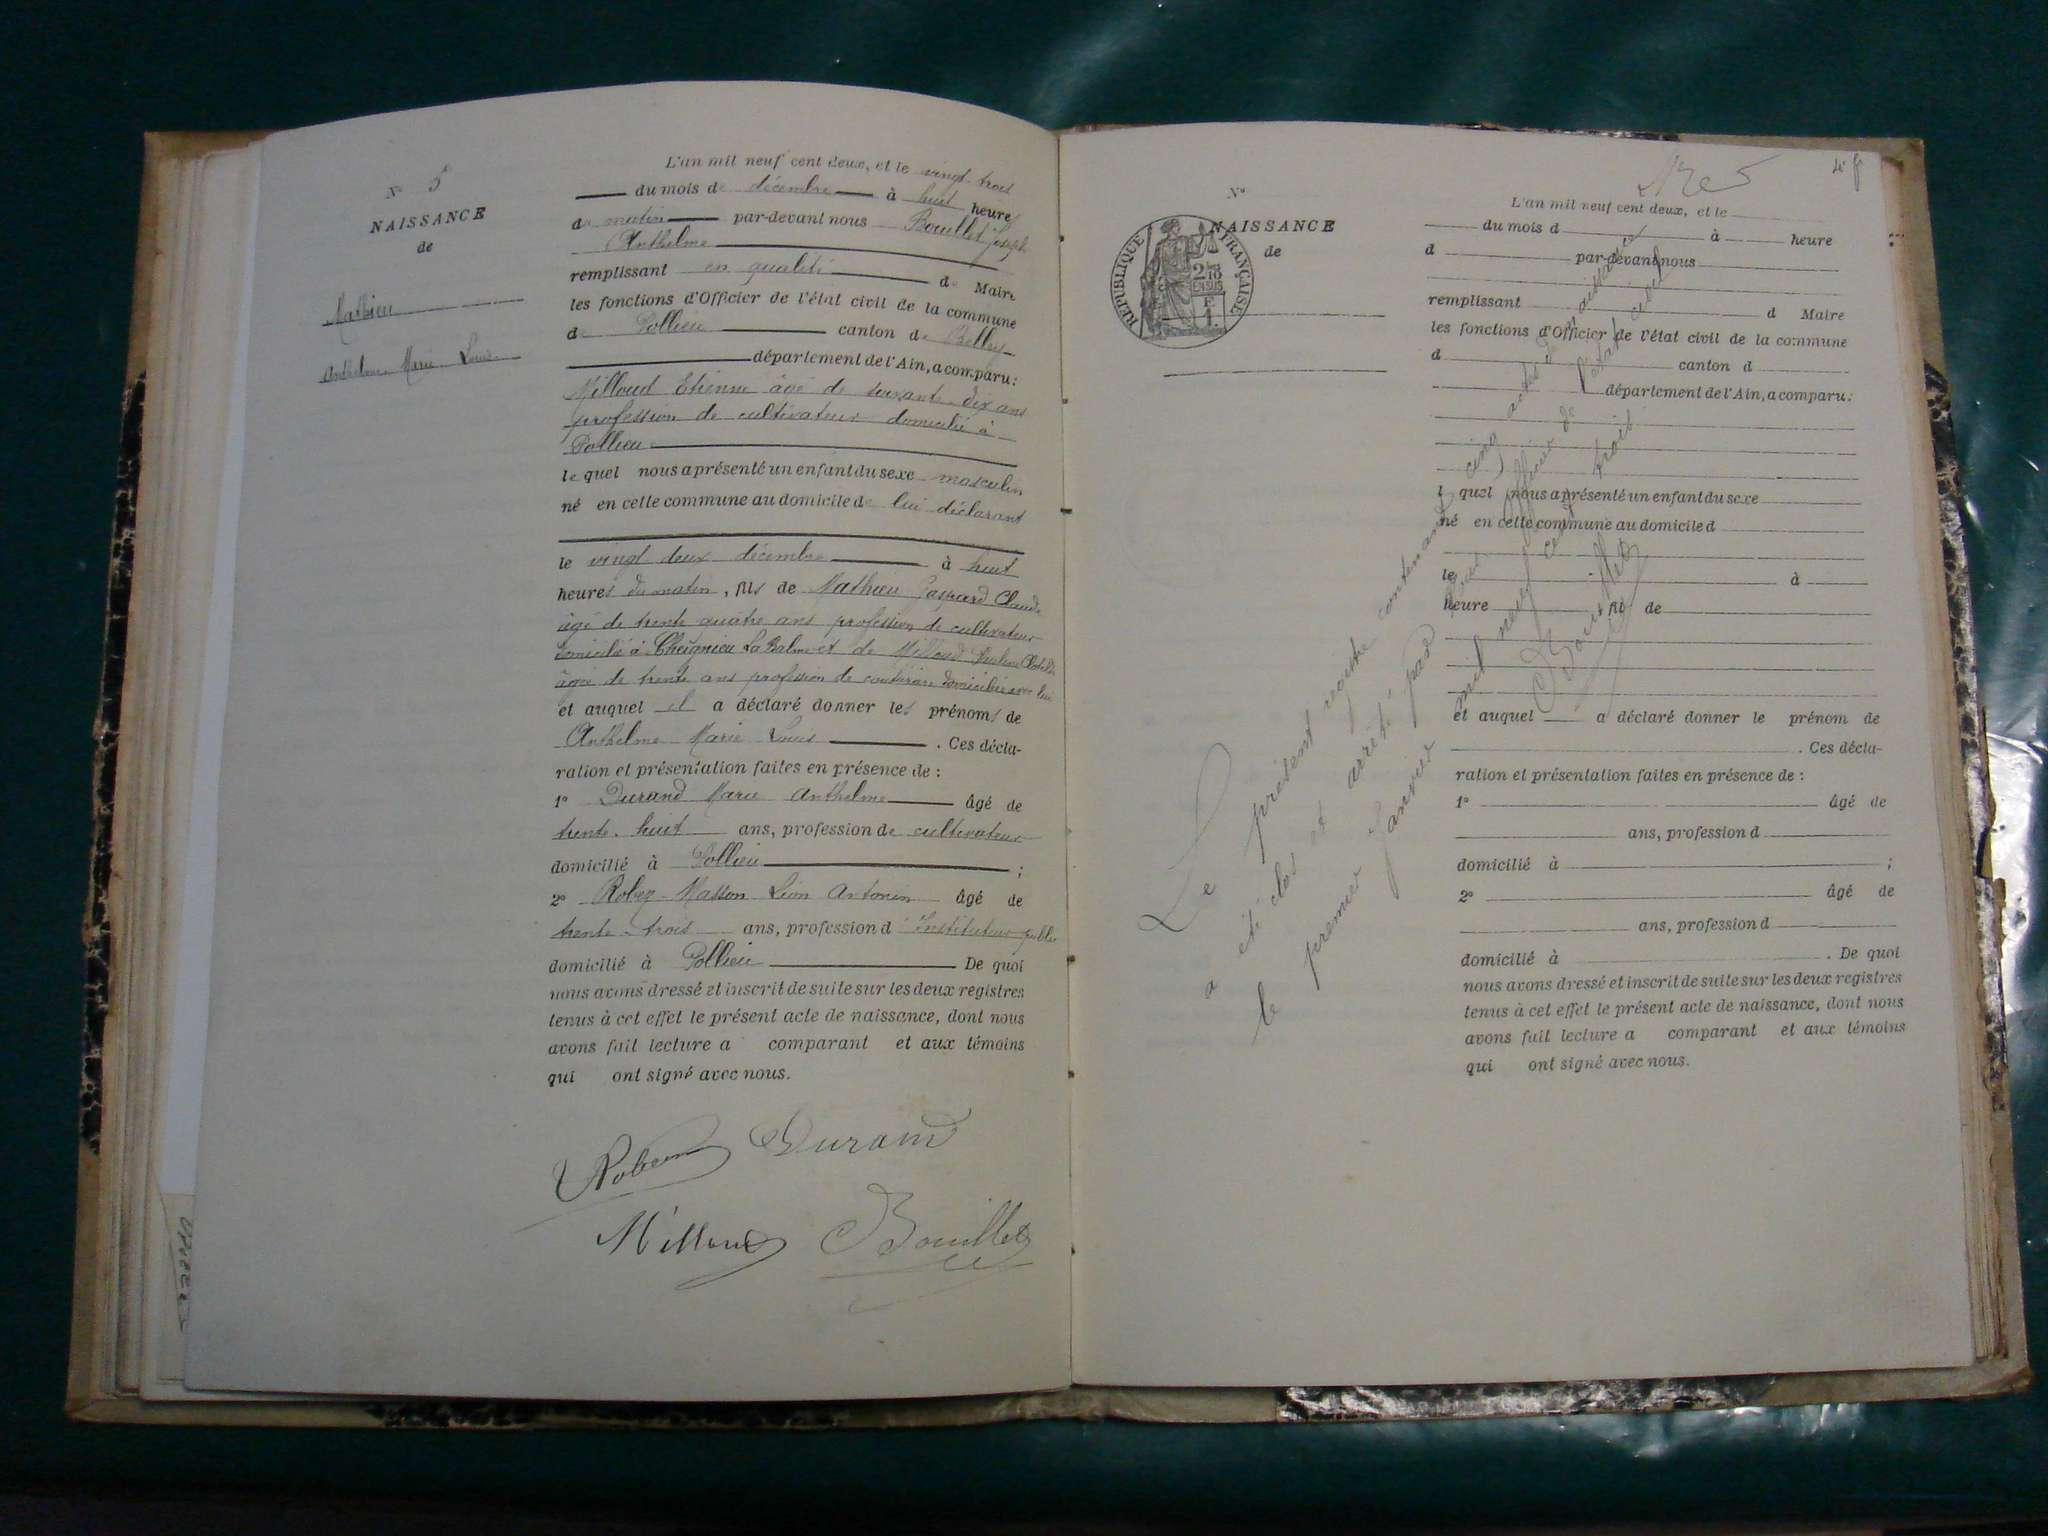 N° 5
NAISSANCE
de
Mathieu
Anthelme Marie Louis
L'an mil neuf cent deux, et le vingt-trois
du mois de décembre à huit heures
du matin par-devant nous Bouillet Joseph
Anthelme
remplissant en qualité de Maire
les fonctions d'Officier de l'état civil de la commune
de Pollieu canton de Belley
département de l'Ain, a comparu:
Milloud Etienne âgé de soixante dix ans
profession de cultivateur domicilié à
Pollieu
lequel nous a présenté un enfant du sexe masculin
né en cette commune au domicile de lui déclarant
le vingt deux décembre à huit
heures du matin, fils de Mathieu Gaspard Claude
âgé de trente quatre ans profession de cultivateur
domicilié à Cheignieu La Balme et de Milloud
âgée de trente ans profession de couturière domiciliée avec lui
et auquel il a déclaré donner les prénoms de
Anthelme Marie Louis . Ces décla-
ration et présentation faites en présence de :
1° Durand Marie Anthelme âgé de
trente-huit ans, profession de cultivateur
domicilié à Pollieu ;
2° Robez-Masson Léon Antonin âgé de
trente-trois ans, profession d'Instituteur public
domicilié à Pollieu De quoi
nous avons dressé et inscrit de suite sur les deux registres
tenus à cet effet le présent acte de naissance, dont nous
avons fait lecture a comparant et aux témoins
qui ont signé avec nous.
Durand
Milloud Bouillet
4e f
N°
NAISSANCE
de
RÉPUBLIQUE FRANÇAISE
L'an mil neuf cent deux, et le
du mois d à heure
d par-devant nous
remplissant d Maire
les fonctions d'Officier de l'état civil de la commune
d canton d
département de l'Ain, a comparu:
l quel nous a présenté un enfant du sexe
né en cette commune au domicile d
le à
heure , fil de
et auquel a déclaré donner le prénom de
. Ces décla-
ration et présentation faites en présence de :
1° âgé de
ans, profession d
domicilié à ;
2° âgé de
ans, profession d
domicilié à . De quoi
nous avons dressé et inscrit de suite sur les deux registres
tenus à cet effet le présent acte de naissance, dont nous
avons fait lecture a comparant et aux témoins
qui ont signé avec nous.
Le présent registre contenant cinq actes de naissance
a été clos et arrêté par nous Officier de l'état civil
le premier Janvier mil neuf cent trois
Bouillet